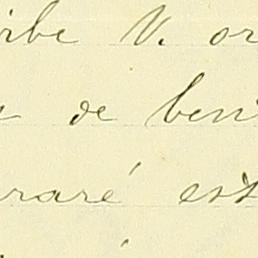 irbe V. or
de ben
raré est